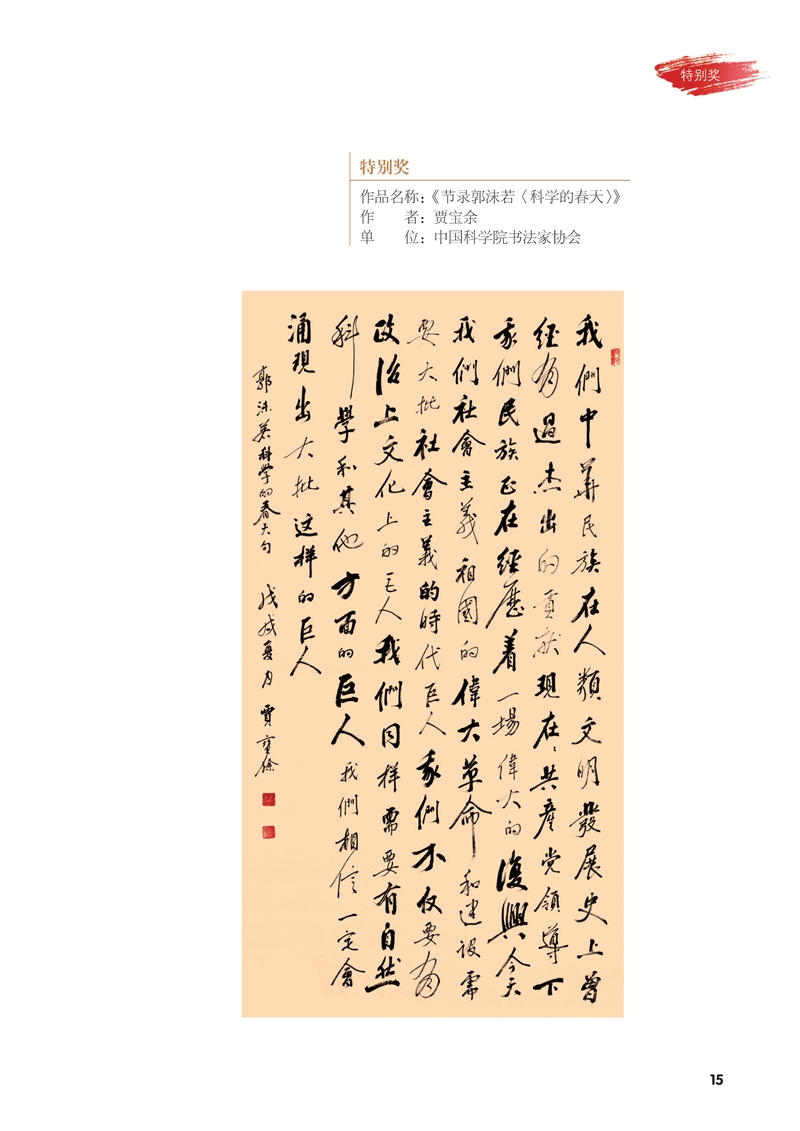 特别奖
特别奖
作品名称：《节录郭沫若〈科学的春天〉》
作　　者：贾宝余
单　　位：中国科学院书法家协会
我們中華民族在人類文明發展史上曾
經有過杰出的貢獻現在、共產党領導下
我們民族正在經歷着一場偉大的復興今天
我們社會主義祖國的偉大革命和建設需
要大批社會主義的時代巨人我們不仅要有
政治上文化上的巨人我們同样需要有自然
科學和其他方面的巨人我們相信一定會
涌現出大批这样的巨人
郭沫若科学的春天句 戊戌夏月 賈宝餘
15